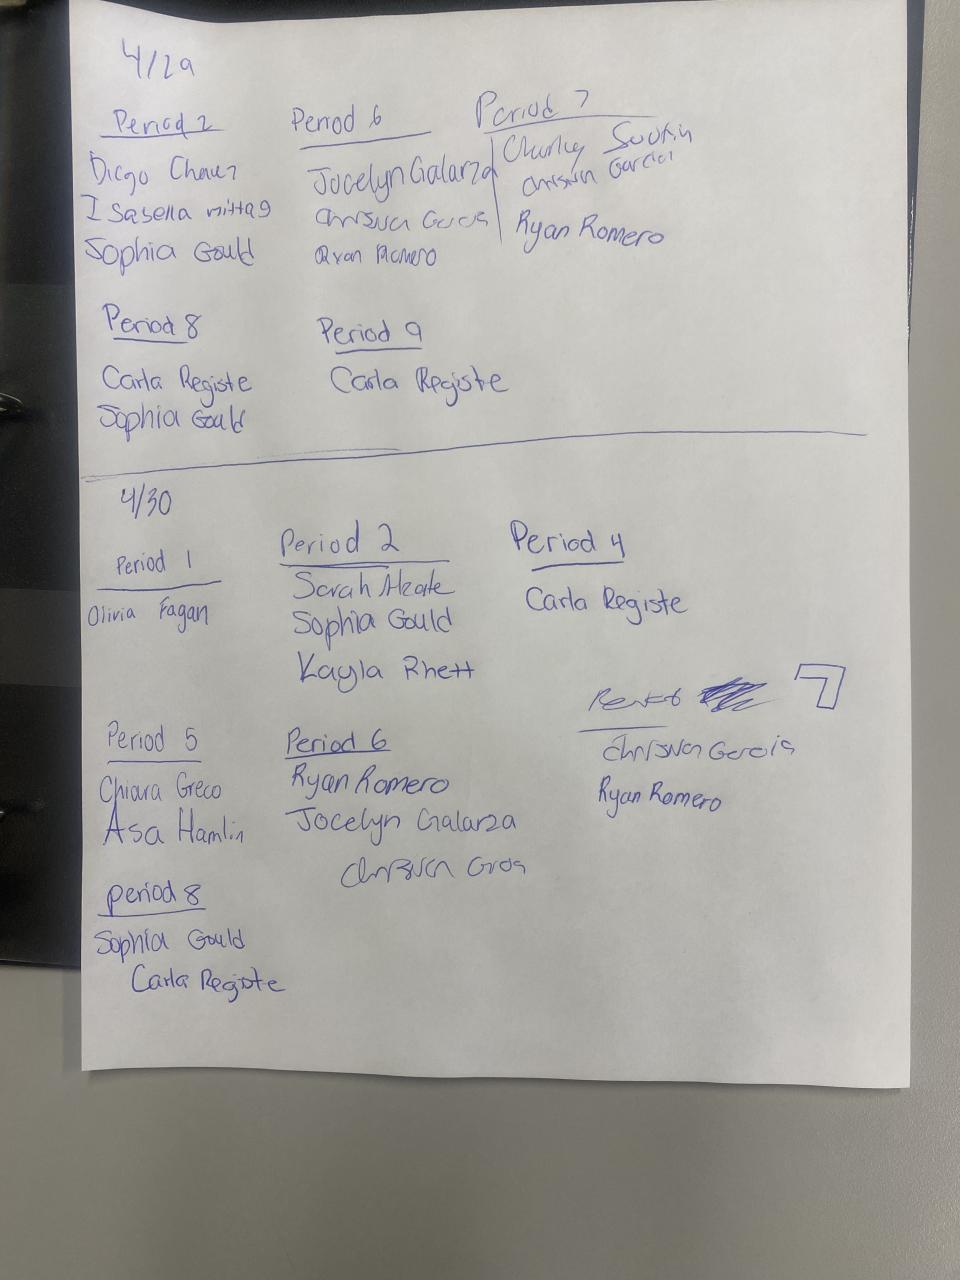 4/29
Period 2
Diego Chavez
Isabella mittag
Sophia Gould
Period 6
Jocelyn Galarza
Ryan Romero
Period 7
Charley
Garcia
Ryan Romero
Period 8
Carla Registe
Sophia Gould
Period 9
Carla Registe
4/30
Period 1
Olivia Fagan
Period 2
Sarah Alzate
Sophia Gould
Kayla Rhett
Period 4
Carla Registe
Period 5
Chiara Greco
Asa Hamlin
Period 6
Ryan Romero
Jocelyn Galarza
7
Garcia
Ryan Romero
period 8
Sophia Gould
Carla Registe